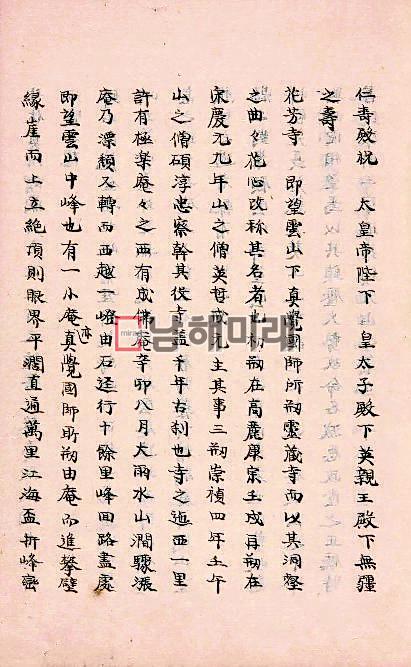 仁壽殿祝 太皇帝陛下 皇太子殿下 英親王殿下 無疆
之壽
花芳寺 即望雲山下真覺國師所刱靈蔵寺而以其洞壑
之曲々花心改称其名者也初刱在高麗康宗壬戌再刱在
宋慶元九年山之僧英哲戒元主其事三刱崇禎四年壬午
山之僧碩淳忠察幹其役盖千年古刹也寺之迤西一里
許有極楽庵々之西有成佛庵辛卯八月大雨水山澗驟漲
庵乃漂頽又轉而西越一嶝由石逕行十餘里峰回路盡處
即望雲山中峰也有一小庵真覺國師所刱由庵而進攀壁
縁崖而上立絶頂則眼界平濶直通萬里江海盃折峰巒
남해미래